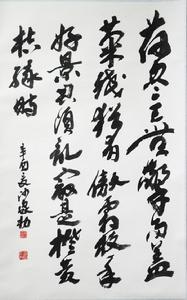 荷盡已無擎雨蓋
菊殘猶有傲霜枝一年
好景君須記最是橙黄
桔緑時
辛酉夏